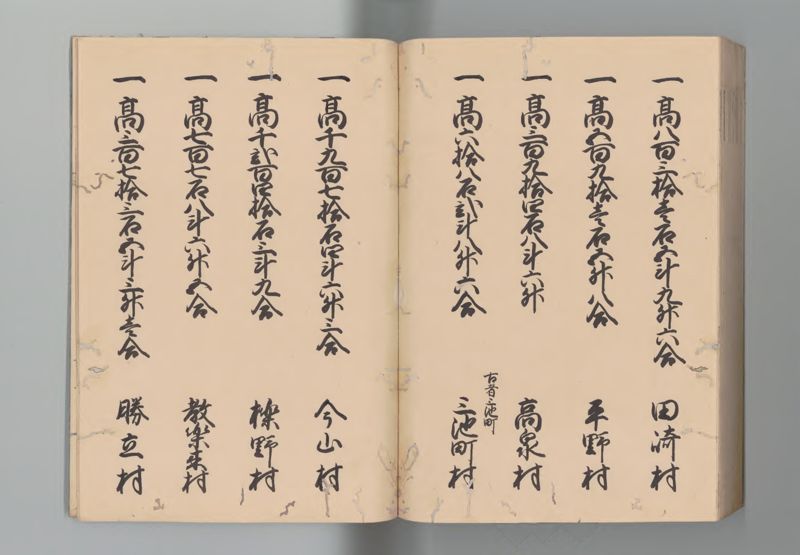 一高八百三拾壱石五斗九升六合 田﨑村
一高五百九拾壱石五升八合 平野村
一高三百九拾四石八斗六升 高泉村
一高六拾八石弐斗八升六合 古者三池町 三池町村
一高千九百七拾石四斗六升三合 今山村
一高千弐百四拾石三斗九合 櫟野村
一高七百七石八斗六升五合 教楽来村
一高三百七拾三石五斗三升壱合 勝立村